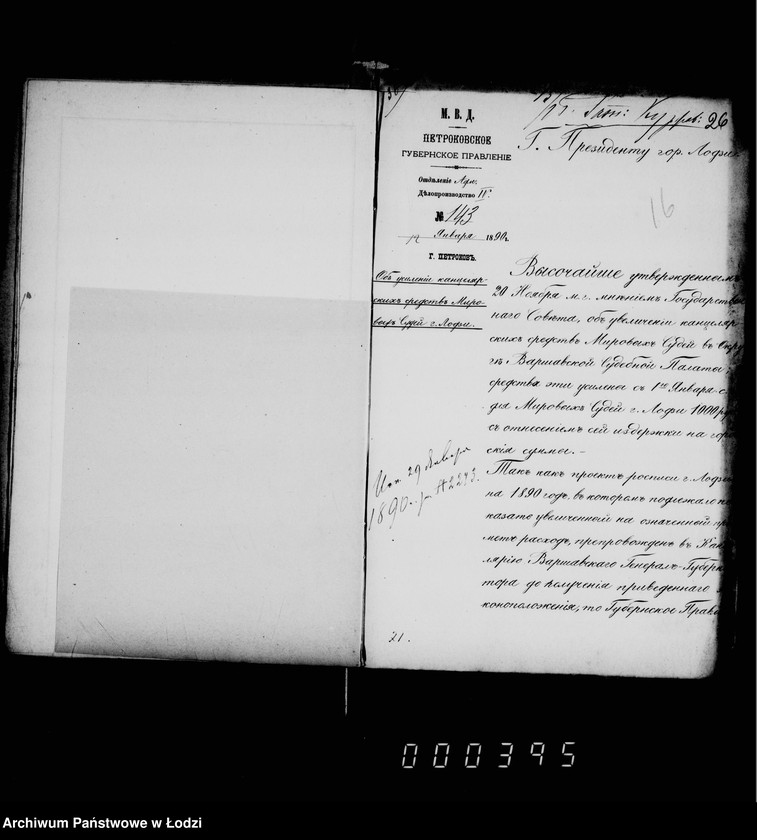 26
М. В. Д.
ПЕТРОКОВСКОЕ
ГУБЕРНСКОЕ ПРАВЛЕНІЕ
Отдѣленіе Адм.
Дѣлопроизводство II.
№ 143
Января 1890 г.
Г. ПЕТРОКОВЪ.
Объ усиленіи канцеляр-
скихъ средствъ Миро-
выхъ Судей г. Лодзи.
Г. Президенту гор. Лодзи
16
Высочайше утвержденнымъ
20 Ноября м. г. мнѣніемъ Государствен
наго Совѣта, объ увеличеніи канцеляр-
скихъ средствъ Мировыхъ Судей въ Окру
гѣ Варшавской Судебной Палаты
средства эти усилены съ 1го Января с.
для Мировыхъ Судей г. Лодзи 1000 ру
съ отнесеніемъ сей издержки на горо
скія суммы. –
Такъ какъ проектъ росписи г. Лодзи
на 1890 годъ, въ которомъ подлежало по
казать увеличенный на означенный пр
метъ расходъ, препровожденъ въ Кан
лярію Варшавскаго Генералъ-Губерна
тора до полученія приведеннаго
коноположенія, то Губернское Правл
Исп. 29 Января
1890 г. за № 2243.
21.
000395
Archiwum Państwowe w Łodzi